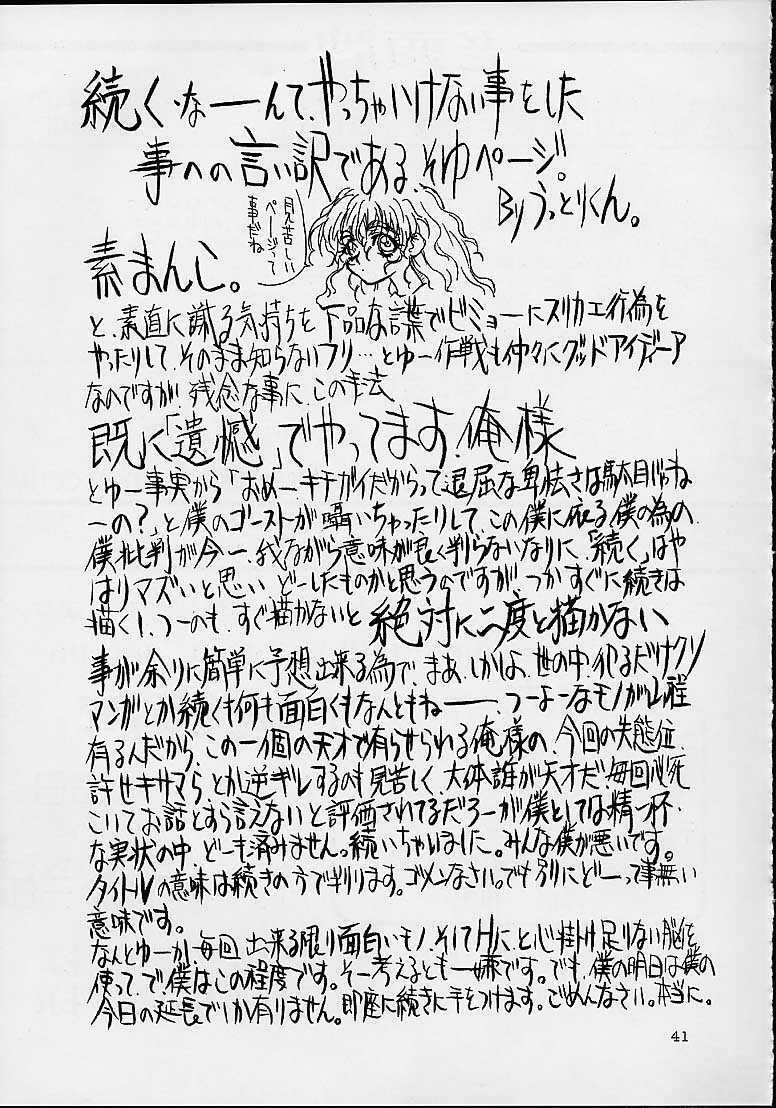 続く、なーーんて、やっちゃいけない事をした
事への言い訳である、そゆページ。
Byうっとりくん。
見苦しい
ページって
事だね
素まんじ。
と、素直に謝る気持ちを下品な言葉でビミョーにスリカエ行為を
やったりして、そのまま知らないフリ…とゆー作戦も仲々にグッドアイディーア
なのですが、残念な事に、この手法
既に「遺憾」でやってます、俺様
とゆー事実から「おめーキチガイだからって退屈な卑怯さは駄目じゃね
ーの?」と僕のゴーストが囁いちゃったりして、この僕に依る僕の為の
僕批判が今一、我ながら意味が良く判らないなりに、「続く」はや
はりマズいと思い、どーしたものかと思うのですが、つかすぐに続きは
描く!、つーのも、すぐ描かないと絶対に二度と描かない
事が余りに簡単に予想出来る為で、まあ、しかしよ、世の中、化るだけクソ
マンガとか続くも何も面白くもなんともねーーー、つーよーなモノが山程
有るんだから、この一個の天才で有らせられる俺様の、今回の失態位、
許せキサマら、とか逆ギレするのも見苦しく、大体誰が天才だ、毎回必死
こいてお話とすら言えないと評価されてるだろーが僕としては精一杯、
な実状の中、どーも済みません。続いちゃいました。みんな僕が悪いです。
タイトルの意味は続きの方で判ります。ゴメンなさい。でも別にどーって事無い
意味です。
なんとゆーか、毎回、出来る限り面白いモノ、そしてHに、と心掛け足りない脳を
使って、で僕はこの程度です。そー考えるとも一嫌です。でも、僕の明日は僕の
今日の延長でしか有りません。即座に続きに手をつけます。ごめんなさい。本当に。
41